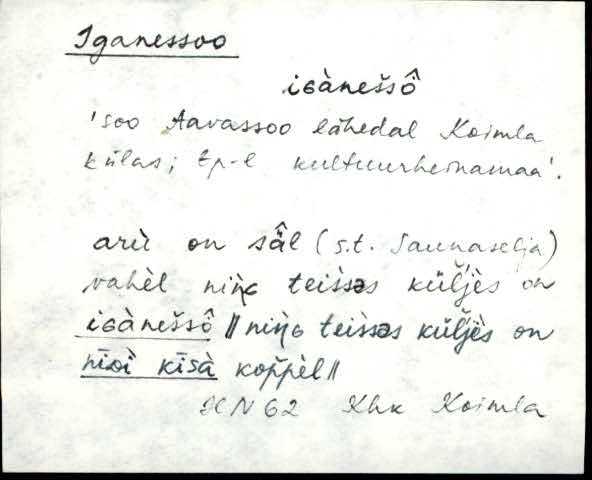 Iganessoo
iɢànešsô̭
'soo Aavassoo lähedal Koimla
külas; tp-l kultuurheinamaa'.
arù on sä̂l (s.t. Saunaselja)
vahèl niǹɢ teìssəs kül̆jès on
iɢànešsô̭ ‖ niǹɢ teìssəs kül̆jès on
nīᴅì kīsà kop̆pèl ‖
KN 62 Khk Koimla